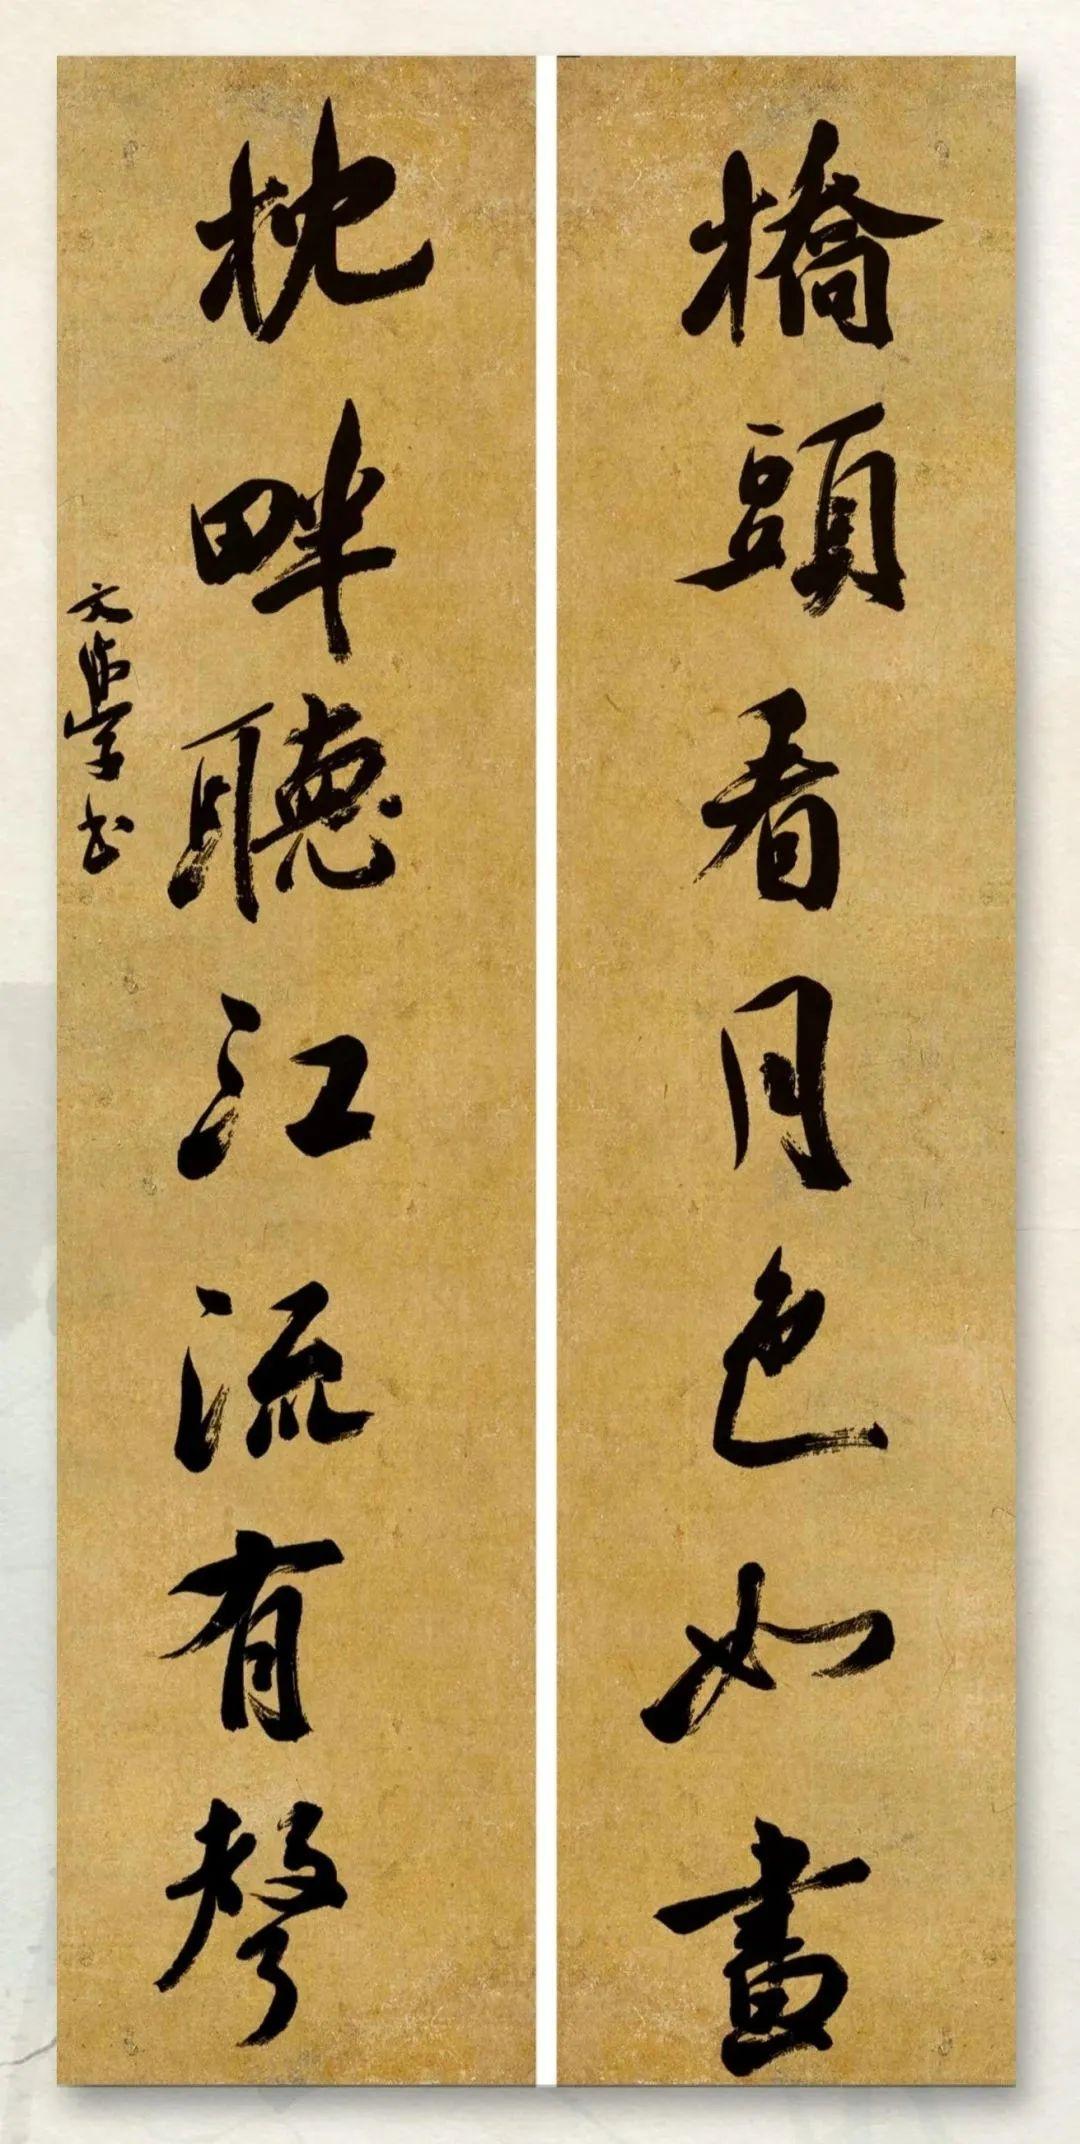 橋頭看月色如畫
枕畔聽江流有聲
文學書